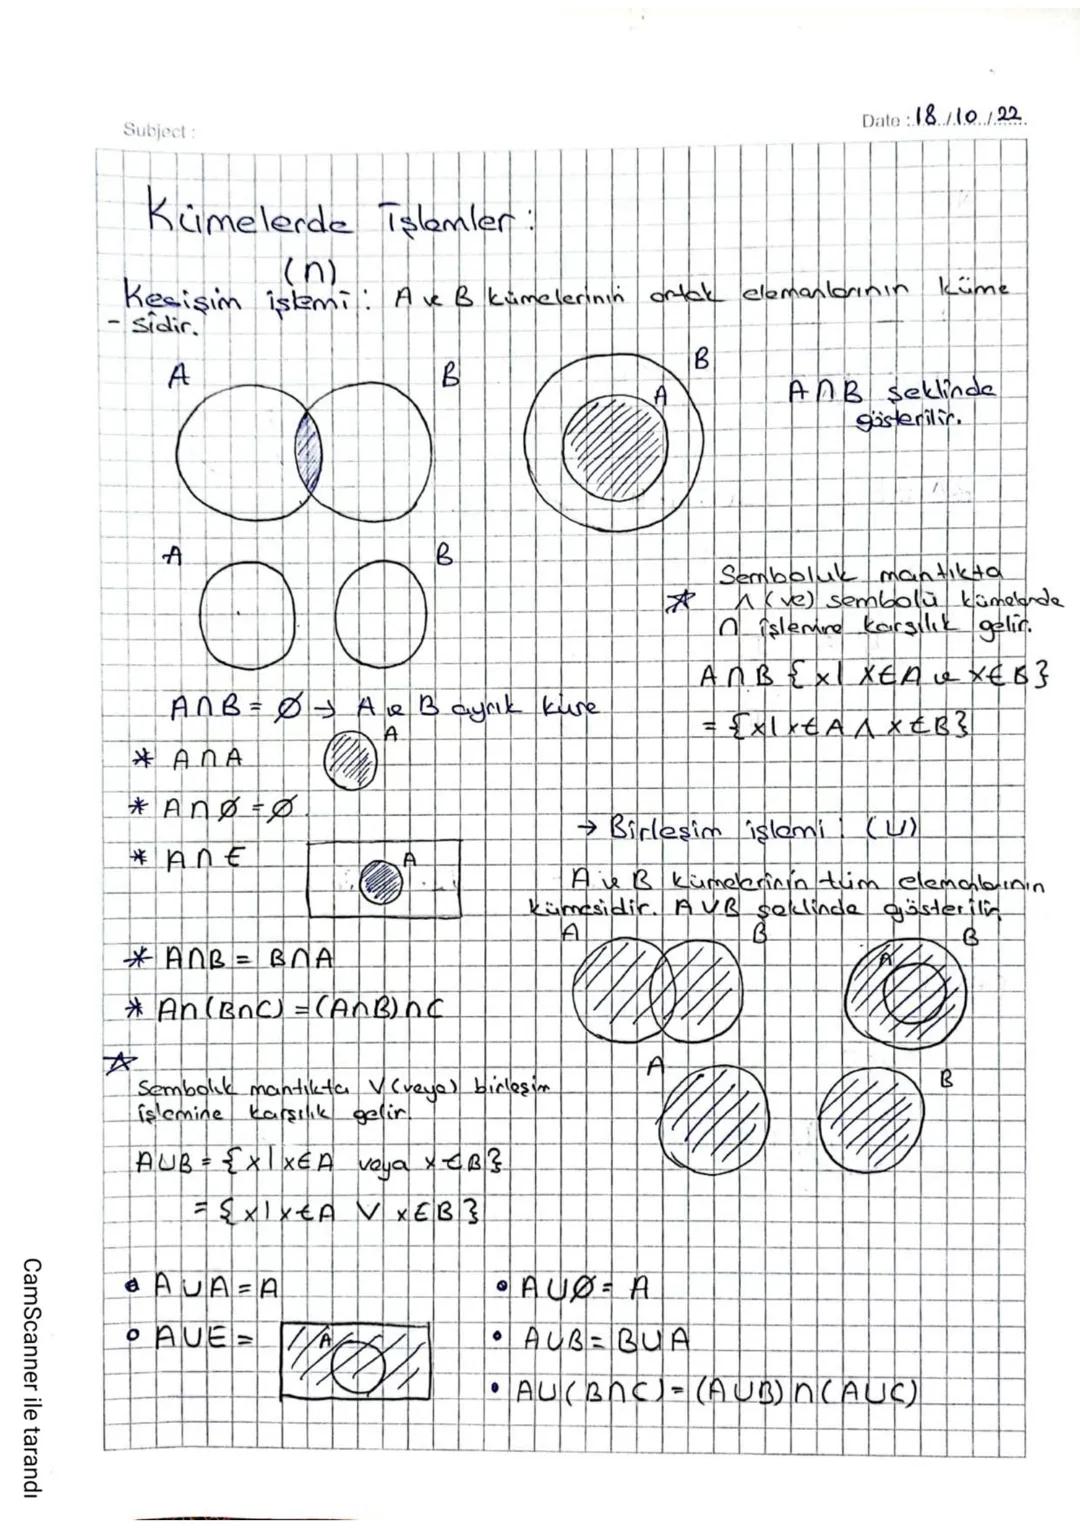 Subject :
Date : 18 / 10 / 22
Kümelerde İşlemler :
(∩)
Kesişim işlemi : A ve B kümelerinin ortak elemanlarının küme
- sidir.
A B
B
A
A∩B şeklinde
gösterilir.
A B
Semboluk mantıkta
☆ ∧ (ve) sembolü kümelerde
∩ işlemine karşılık gelir.
A∩B {x| x∈A ve x∈B}
= {x|x∈A ∧ x∈B}
A∩B = ∅ → A ve B ayrık küme
* A∩A
A
* A∩∅ = ∅
* A∩E
A
* A∩B = B∩A
* A∩(B∩C) = (A∩B)∩C
→ Birleşim işlemi : (∪)
A ve B kümelerinin tüm elemanlarının
kümesidir. A∪B şeklinde gösterilir.
A B
A B
A B
☆
Sembolik mantıkta ∨ (veya) birleşim
işlemine karşılık gelir.
A∪B = {x|x∈A veya x∈B}
= {x|x∈A ∨ x∈B}
• A∪A = A
• A∪E =
A
• A∪∅ = A
• A∪B = B∪A
• A∪(B∩C) = (A∪B)∩(A∪C)
CamScanner ile tarandı